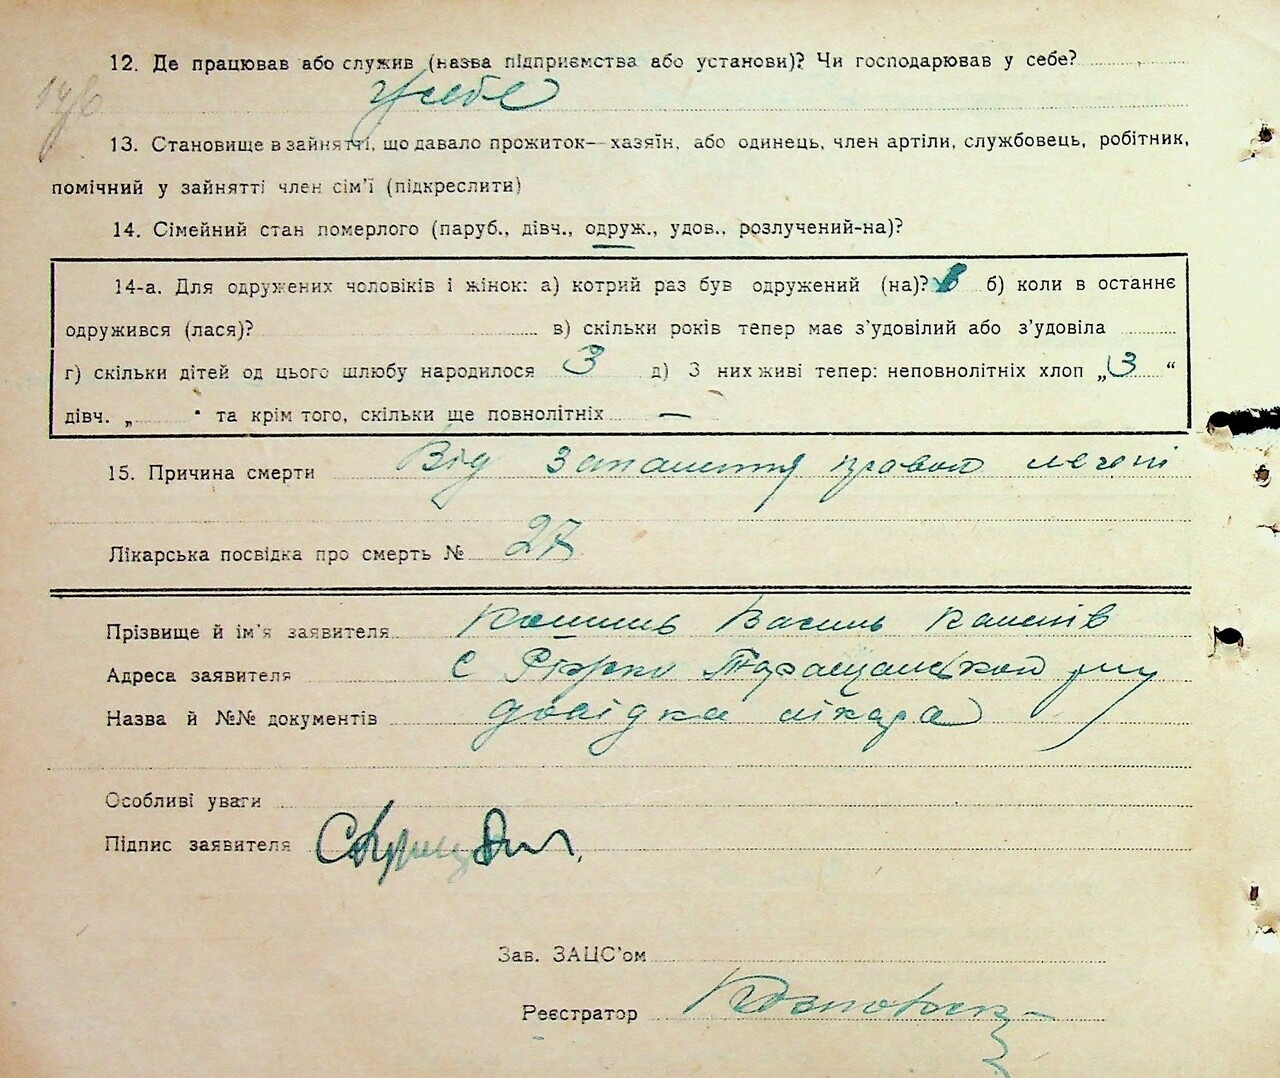 12. Де працював або служив (назва підприємства або установи)? Чи господарював у себе?
У себе
13. Становище в зайнятті, що давало прожиток—хазяїн, або одинець, член артіли, службовець, робітник,
помічний у зайнятті член сім'ї (підкреслити)
14. Сімейний стан померлого (паруб., дівч., одруж., удов., розлучений-на)?
14-а. Для одружених чоловіків і жінок: а) котрий раз був одружений (на)? б) коли в останнє
одружився (лася)? в) скільки років тепер має з'удовілий або з'удовіла
г) скільки дітей од цього шлюбу народилося 3 д) З них живі тепер: неповнолітніх хлоп „3“
дівч. „ “ та крім того, скільки ще повнолітніх —
15. Причина смерти Від запалення правой легені
Лікарська посвідка про смерть № 27
Прізвище й ім'я заявителя Василь
Адреса заявителя с Таращанской
Назва й №№ документів довідка лікара
Особливі уваги
Підпис заявителя
Зав. ЗАЦС'ом
Реєстратор